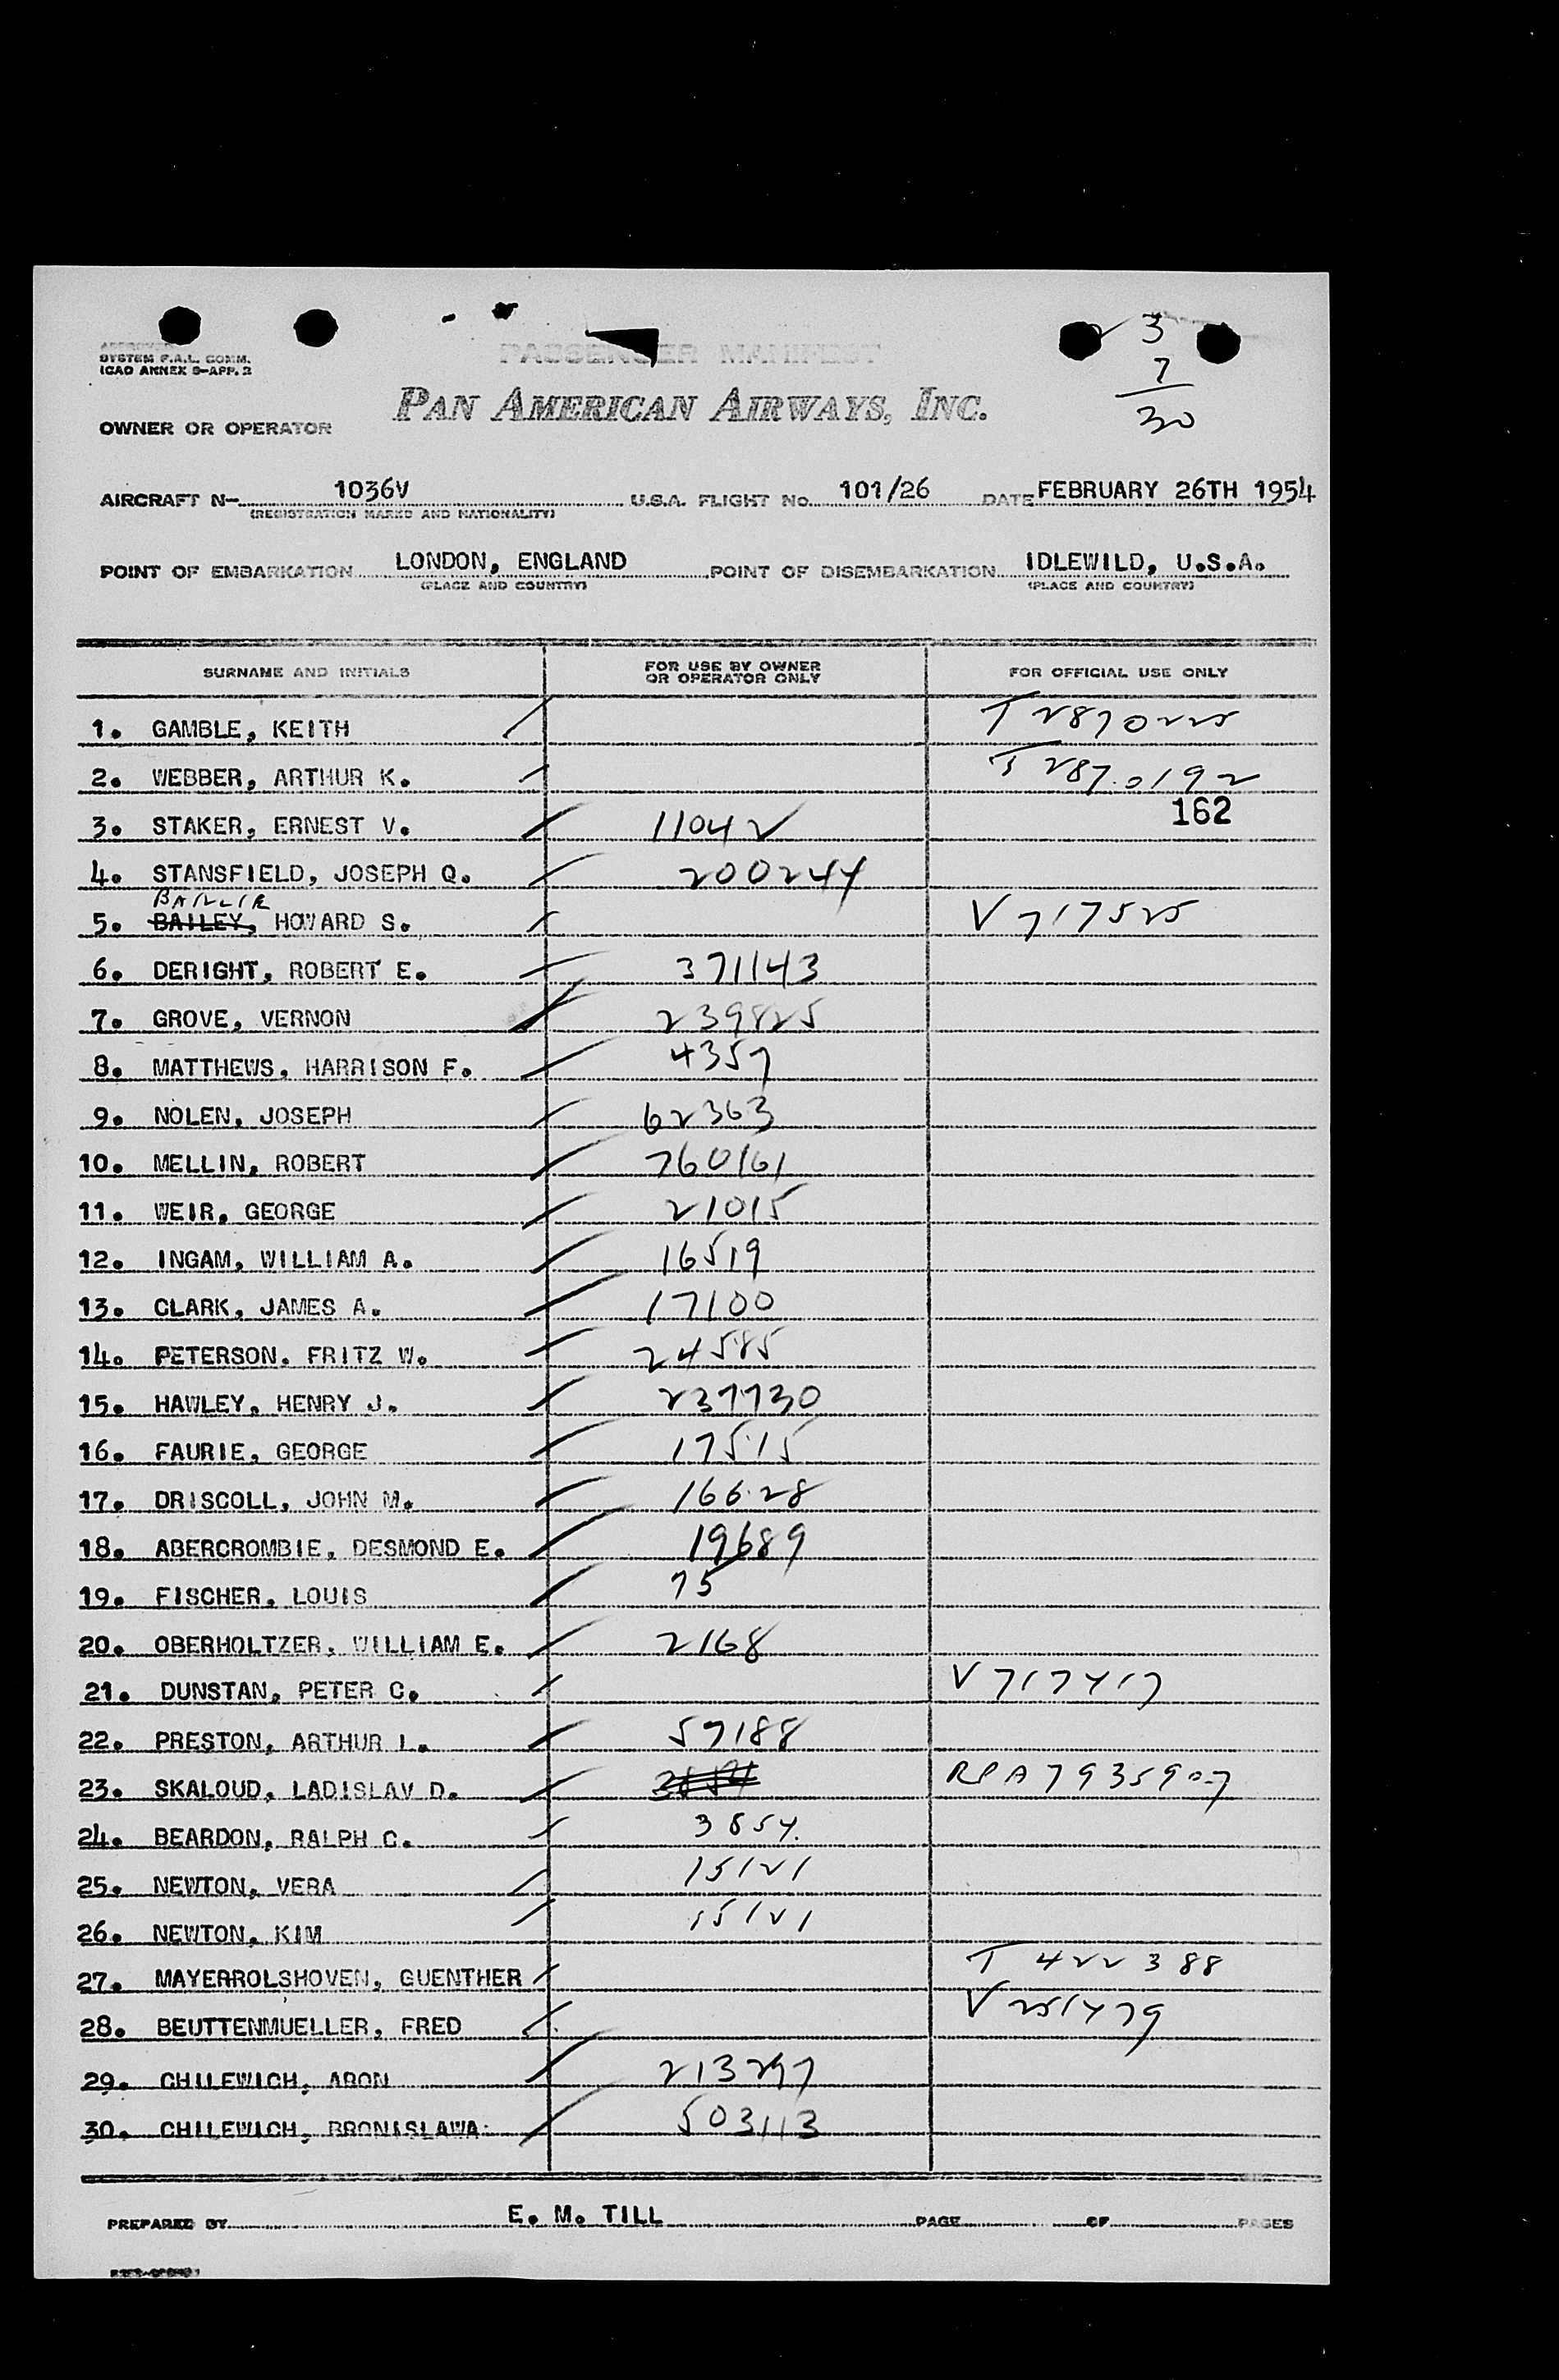 3
7
30
APPROVED
SYSTEM F.A.L. COMM.
ICAO ANNEX 9-APP. 2
PASSENGER MANIFEST
PAN AMERICAN AIRWAYS, INC.
OWNER OR OPERATOR
AIRCRAFT N- 1036V U.S.A. FLIGHT No. 101/26 DATE FEBRUARY 26TH 1954
(REGISTRATION MARKS AND NATIONALITY)
POINT OF EMBARKATION LONDON, ENGLAND POINT OF DISEMBARKATION IDLEWILD, U.S.A.
(PLACE AND COUNTRY) (PLACE AND COUNTRY)
SURNAME AND INITIALS FOR USE BY OWNER OR OPERATOR ONLY FOR OFFICIAL USE ONLY
1. GAMBLE, KEITH T 2870225
2. WEBBER, ARTHUR K. T 2870192
162
3. STAKER, ERNEST V. 11042
4. STANSFIELD, JOSEPH Q. 200244
BAILLIE
5. BAILEY, HOWARD S. V 717525
6. DERIGHT, ROBERT E. 371143
7. GROVE, VERNON 239825
8. MATTHEWS, HARRISON F. 4357
9. NOLEN, JOSEPH 62363
10. MELLIN, ROBERT 760161
11. WEIR, GEORGE 21015
12. INGAM, WILLIAM A. 16519
13. CLARK, JAMES A. 17100
14. PETERSON, FRITZ W. 24585
15. HAWLEY, HENRY J. 237730
16. FAURIE, GEORGE 17515
17. DRISCOLL, JOHN M. 16628
18. ABERCROMBIE, DESMOND E. 19689
19. FISCHER, LOUIS 75
20. OBERHOLTZER, WILLIAM E. 2168
21. DUNSTAN, PETER C. V 717417
22. PRESTON, ARTHUR L. 57188
23. SKALOUD, LADISLAV D. 3854 RPA 7935907
24. BEARDON, RALPH C. 3854
25. NEWTON, VERA 15121
26. NEWTON, KIM 15121
27. MAYERROLSHOVEN, GUENTHER T 422388
28. BEUTTENMUELLER, FRED V 251479
29. CHILEWICH, ARON 213297
30. CHILEWICH, BRONISLAWA 503113
PREPARED BY E. M. TILL PAGE OF PAGES